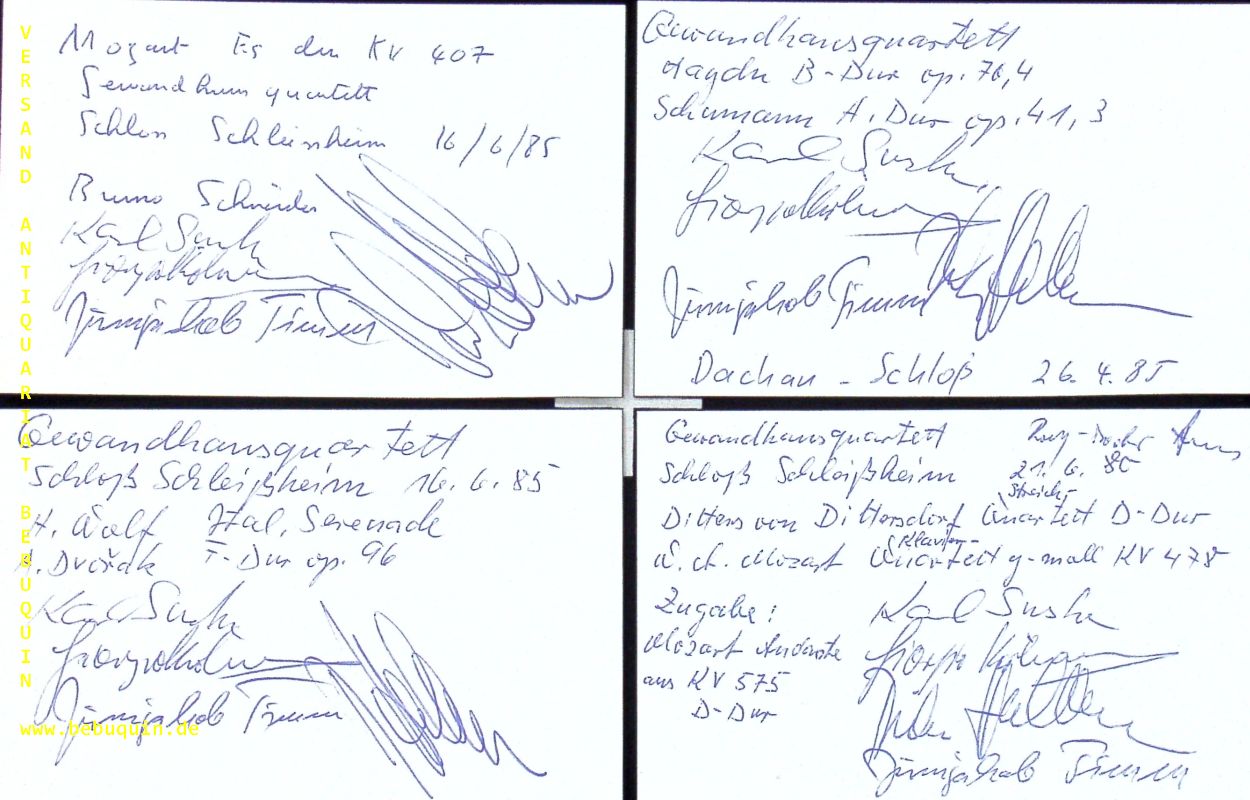 Mozart Es dur KV 407
Gewandhausquartett
Schloss Schleissheim 16/6/85
Bruno Schneider
Karl Suske
Giorgio Kröhner
Jürnjakob Timm
Gewandhausquartett
Haydn B-Dur op. 76,4
Schumann A-Dur op. 41, 3
Karl Suske
Giorgio Kröhner
Jürnjakob Timm
Dachau - Schloß 26.4.85
Gewandhausquartett
Schloß Schleißheim 16.6.85
H. Wolf Ital. Serenade
A. Dvořák F-Dur op. 96
Karl Suske
Giorgio Kröhner
Jürnjakob Timm
Gewandhausquartett
Schloß Schleißheim 21.6.80
Streich-
Ditters von Dittersdorf Quartett D-Dur
Klavier-
W. A. Mozart Quartett g-moll KV 478
Zugabe:
Mozart Andante
aus KV 575
D-Dur
Karl Suske
Giorgio Kröhner
Jürnjakob Timm
VERSAND ANTIQUARIAT BEBUQUIN
www.bebuquin.de